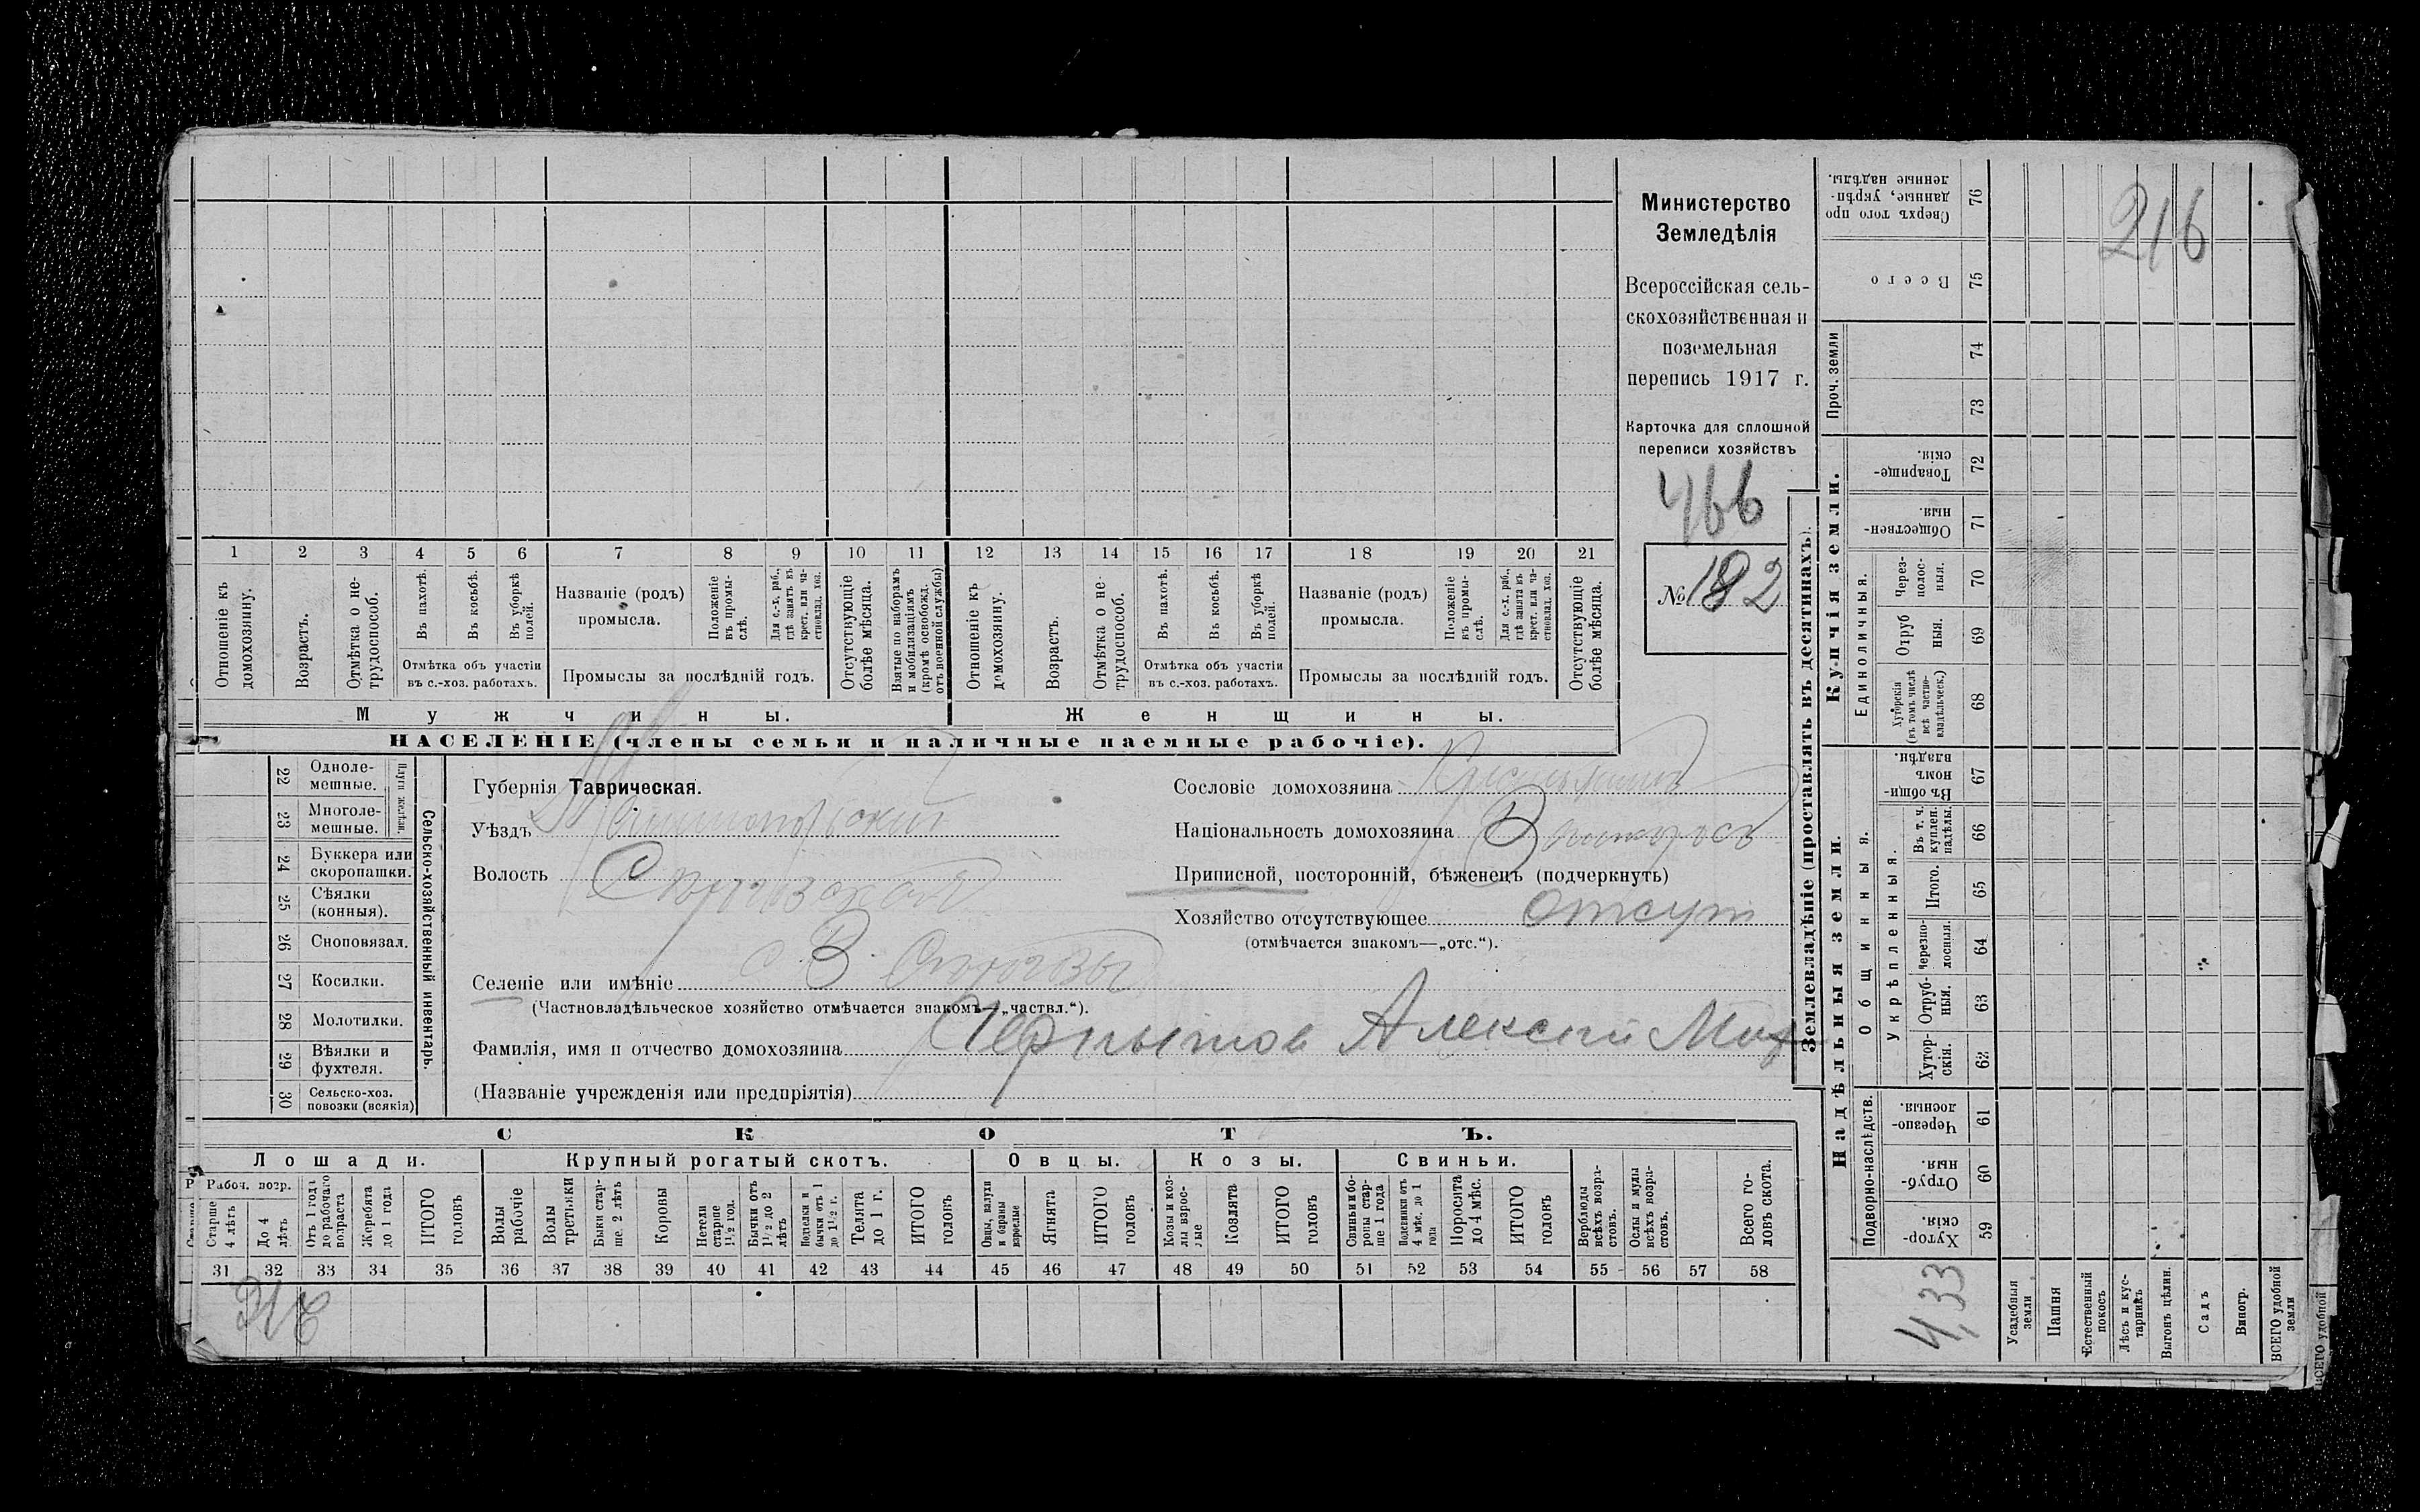 Министерство
Земледѣлія
Всероссійская сель-
скохозяйственная и
поземельная
перепись 1917 г.
Карточка для сплошной
переписи хозяйствъ
466
№ 182
216
1 2 3 4 5 6 7 8 9 10 11 12 13 14 15 16 17 18 19 20 21
Отношеніе къ домохозяину.
Возрастъ.
Отмѣтка о не-трудоспособ.
Въ пахотѣ.
Въ косьбѣ.
Въ уборкѣ полей.
Названіе (родъ) промысла.
Положеніе въ промы-слѣ.
Для с.-х. раб., гдѣ занятъ въ крест. или ча-стновлад. хоз.
Отсутствующіе болѣе мѣсяца.
Взятые по наборамъ и мобилизаціямъ (кромѣ освобожд. отъ военной службы)
Отношеніе къ домохозяину.
Возрастъ.
Отмѣтка о не-трудоспособ.
Въ пахотѣ.
Въ косьбѣ.
Въ уборкѣ полей.
Названіе (родъ) промысла.
Положеніе въ промы-слѣ.
Для с.-х. раб., гдѣ занята въ крест. или ча-стновлад. хоз.
Отсутствующіе болѣе мѣсяца.
Отмѣтка объ участіи въ с.-хоз. работахъ.
Промыслы за послѣдній годъ.
Отмѣтка объ участіи въ с.-хоз. работахъ.
Промыслы за послѣдній годъ.
Мужчины.
Женщины.
НАСЕЛЕНІЕ (члены семьи и наличные наемные рабочіе).
22 Одноле-мешные.
23 Многоле-мешные.
Плуги желѣзн.
24 Буккера или скоропашки.
25 Сѣялки (конныя).
26 Сноповязал.
27 Косилки.
28 Молотилки.
29 Вѣялки и фухтеля.
30 Сельско-хоз. повозки (всякія)
Сельско-хозяйственный инвентарь.
Губернія Таврическая.
Уѣздъ
Волость
Селеніе или имѣніе
(Частновладѣльческое хозяйство отмѣчается знакомъ—„частвл.“).
Фамилія, имя и отчество домохозяина Алексей Мих
(Названіе учрежденія или предпріятія)
Сословіе домохозяина
Національность домохозяина
Приписной, посторонній, бѣженецъ (подчеркнуть)
Хозяйство отсутствующее отсут
(отмѣчается знакомъ—„отс.“).
СКОТЪ.
Лошади. Крупный рогатый скотъ. Овцы. Козы. Свиньи.
Рабоч. возр.
Старше 4 лѣтъ
До 4 лѣтъ
Отъ 1 года до рабочаго возраста
Жеребята до 1 года
ИТОГО головъ
Волы рабочіе
Волы третьяки
Быки стар-ше. 2 лѣтъ
Коровы
Нетели старше 1½ год.
Бычки отъ 1½ до 2 лѣтъ
Телки и бычки отъ 1 до 1½ г.
Телята до 1 г.
ИТОГО головъ
Овцы, валухи и бараны взрослые
Ягнята
ИТОГО головъ
Козы и коз-лы взрос-лые
Козлята
ИТОГО головъ
Свиньи и бо-ровы стар-ше 1 года
Подсвинки отъ 4 мѣс. до 1 года
Поросята до 4 мѣс.
ИТОГО головъ
Верблюды всѣхъ возра-стовъ.
Ослы и мулы всѣхъ возра-стовъ.
Всего го-ловъ скота.
31 32 33 34 35 36 37 38 39 40 41 42 43 44 45 46 47 48 49 50 51 52 53 54 55 56 57 58
Землевладѣніе (проставлять въ десятинахъ).
Надѣльныя земли.
Купчія земли.
Проч. земли
Подворно-наслѣдств.
Общинныя.
Укрѣпленныя.
Единоличныя.
76 Сверхъ того про данные, укрѣп-ленные надѣлы.
75 Всего
74
73
72 Товарище-скія.
71 Обществен-ныя.
70 Через-полос-ныя.
69 Отруб ныя.
68 Хуторскія (въ томъ числѣ всѣ частно-владѣльческ.)
67 Въ общи-номъ владѣн.
66 Въ т. ч. куплен. надѣлы.
65 Итого.
64 Черезпо-лосныя.
63 Отруб-ныя.
62 Хутор-скія.
61 Черезпо-лосныя.
60 Отруб-ныя.
59 Хутор-скія.
4,33
Усадебныя земли
Пашня
Естественный покосъ
Лѣсъ и кус-тарникъ
Выгонъ цѣлин.
Садъ
Виногр.
ВСЕГО удобной земли
ВСЕГО удобной